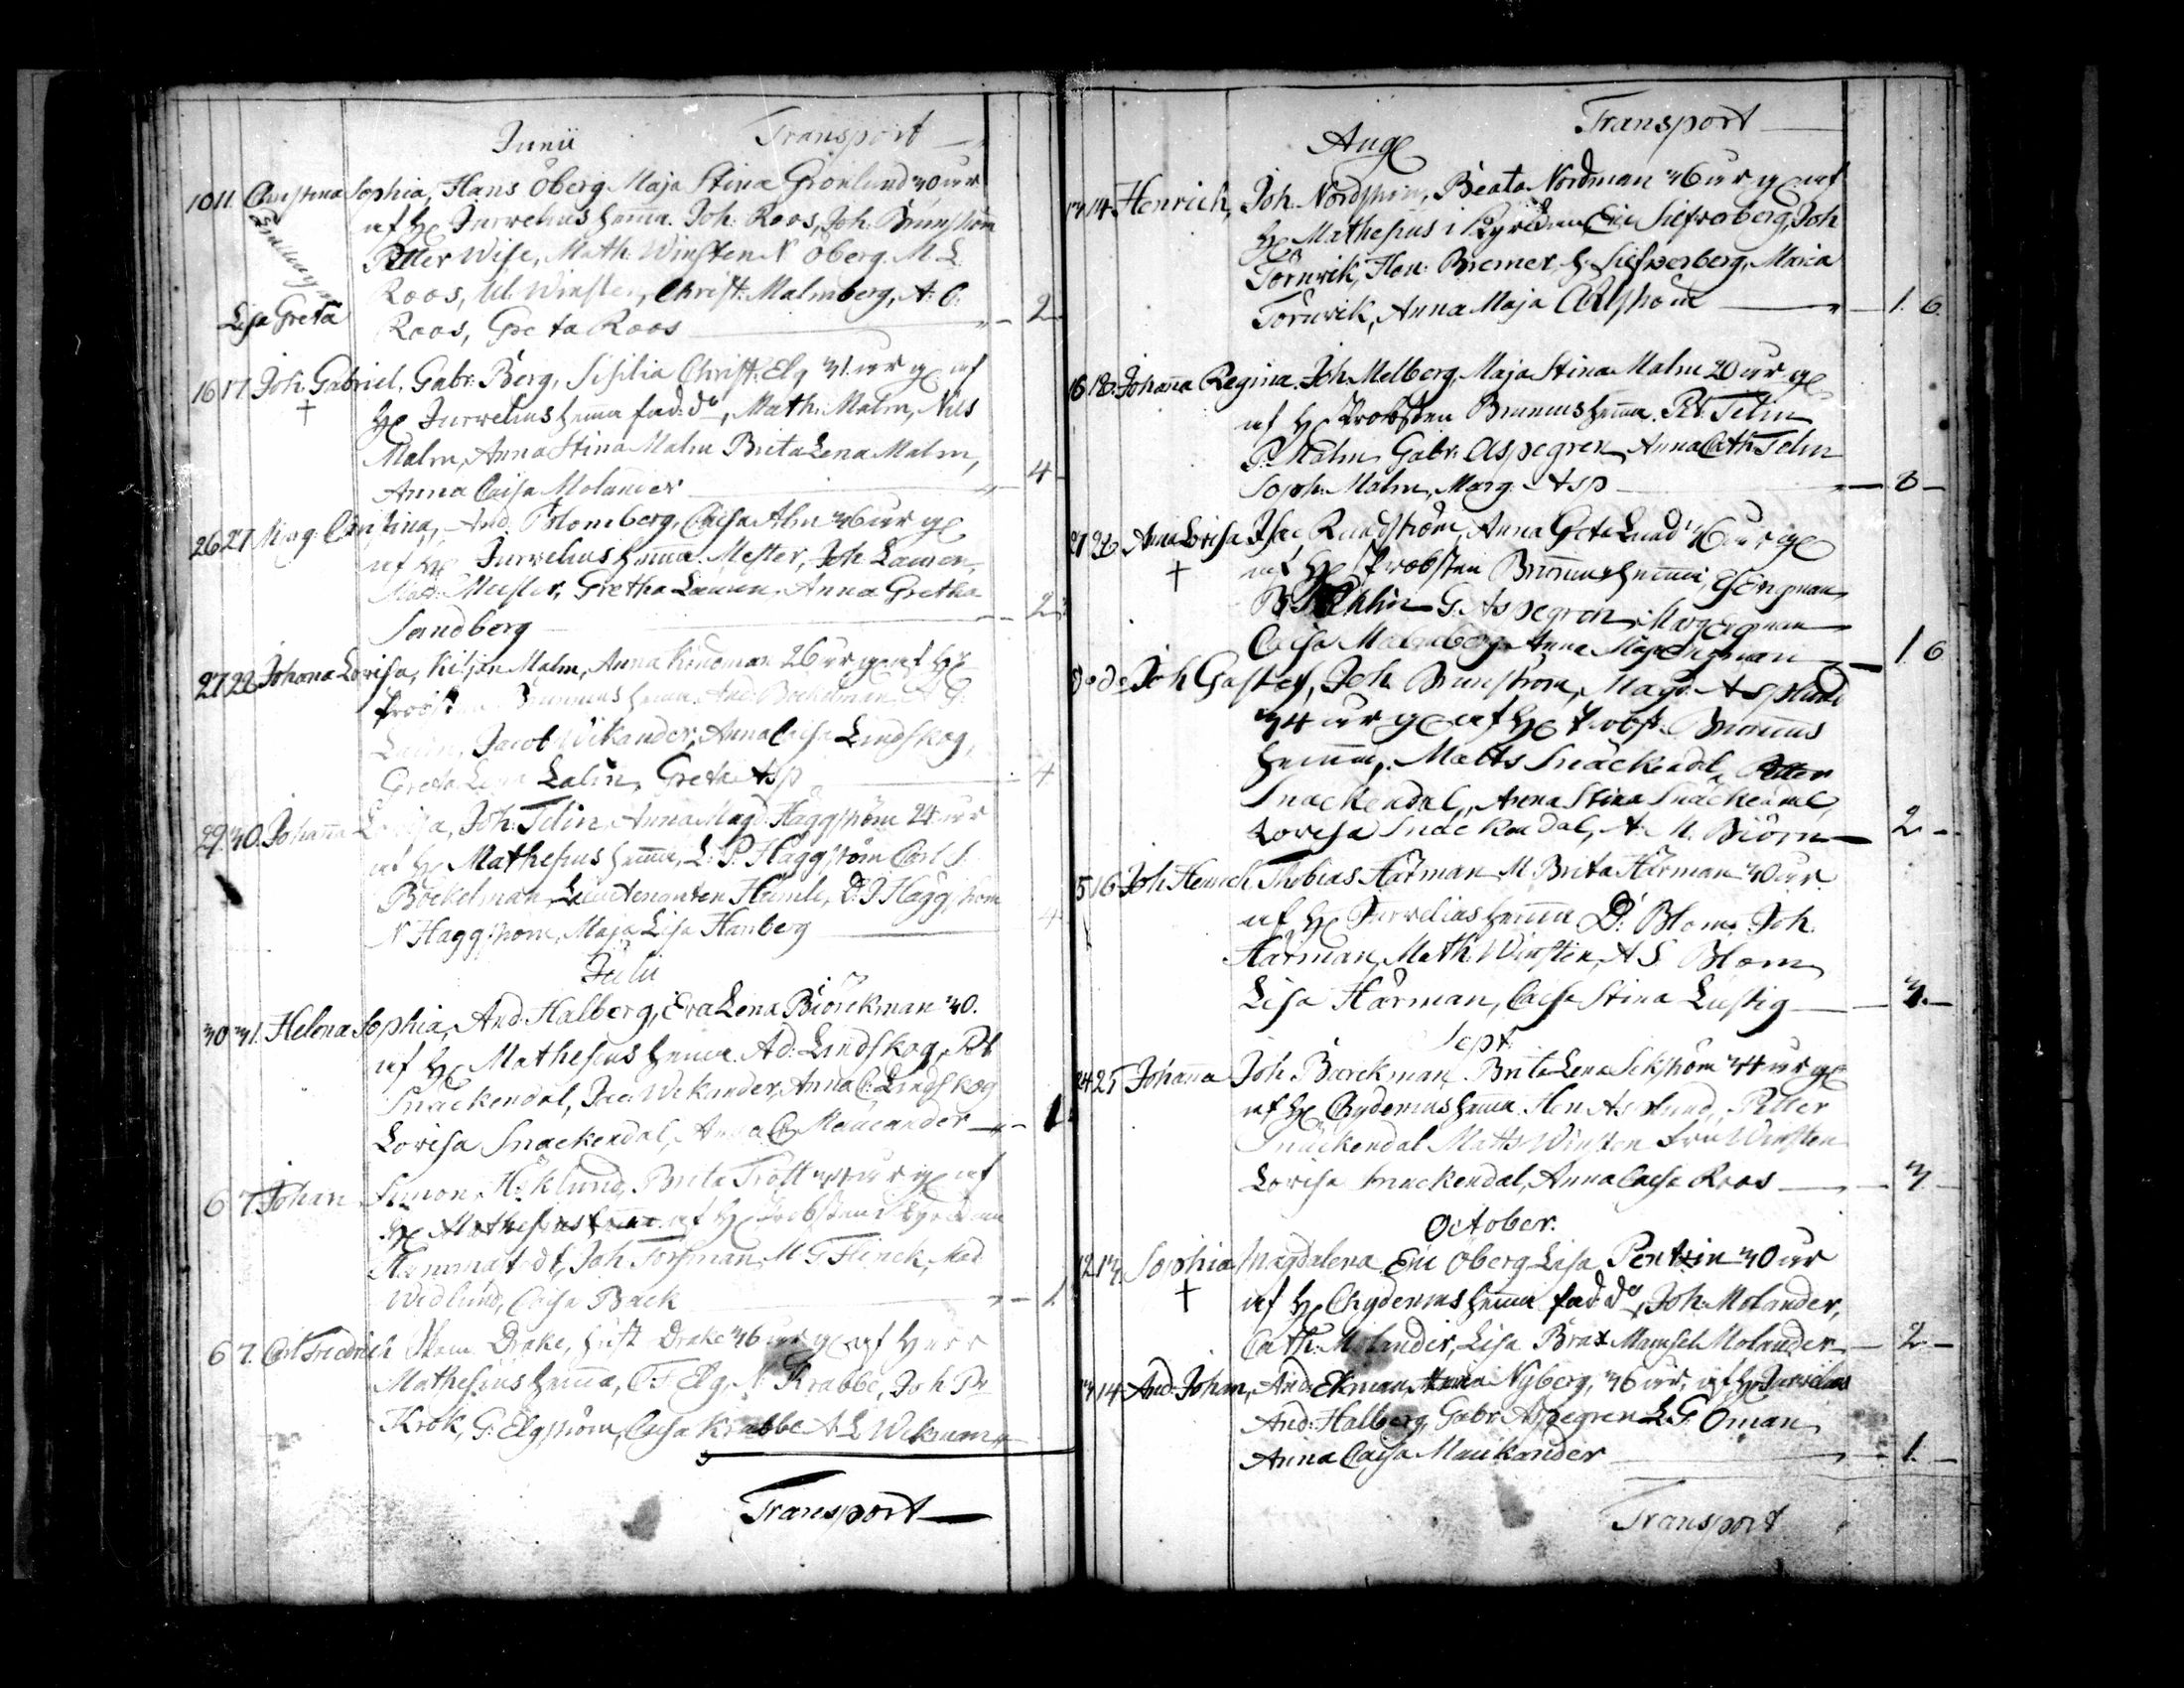 Junii Transport
10 11. Christina Sophia, Hans Öberg Maja Stina Grönlund 30 år
af H: Jurvelius hemma. Joh: Roos, Joh. Brunström
Petter Wise, Math: Winsten N Öberg. M. L.
Roos, Ul. Winsten, Christ: Malmberg, A: C.
Lisa Greta Roos, Greta Roos 2
16 17 Joh. Gabriel. Gabr: Berg, Sisilia Christ: Elg 31 år g af
† H: Jurvelius hemma fad: do, Math: Malm, Nils
Malm, Anna Stina Malm Brita Lena Malm,
Anna Caisa Molander 4
26 27 Marg: Cristina, And: Blomberg, Caisa Alm 36 år g
af H: Jurvelius hemma. Mester, Joh Lauren,
Gretha Lauren, Anna Gretha
Sandberg 2
27 22 Johana Lovisa, Kiljan Malm, Anna Kindman 26 år g af H:
Brunnius hemma. And: Böckelman
Jacob Wikander, Anna Caisa Lindskog,
Greta Lena Lalin, Greta Asp 4
29 30. Johanna Lovisa, Joh: Telin, Anna Magd: Häggström 24 år
af H: Mathesius hemma, L: P: Häggström Carl J.
Böckelman, Leutenanten Häggström
N Häggström, Maja Lisa Hanberg 4
Julii
30 31. Helena Sophia, And: Halberg, Eva Lena Biörckman 30.
af H: Mathesius hemma. Ad: Lindskog, Pet
Snäckendal, Jac: Wikander, Anna C: Lindskog
Lovisa Snäckendal, Anna C: 1
6 7. Johan Simon Höklund, Brita Trott år g af
H: Mathesius af H: Probsten i Kyrckan
Joh Forsman, M G Flinck, Mad
Wedlund, Caisa Back
6 7. Carl Fredrich Drake, Drake 36 år g af Herr
Mathesius hemma, C F Elg, N: Krabbe, Joh Pr
Krok, G: Elgström, Caisa Krabbe A L Wikman
Transport
Aug Transport
13 14 Henrich, Joh: Nordström, Beata Nordman 36 år g af
H: Mathesius i Kyrckan, Eric Siefverberg, Joh
Törnvik, Hen: Bremer, H. Siefverberg, Maria
Törnvik, Anna Maja Carlström 1. 6.
16 18. Johanna Regina. Joh: Melberg, Maja Stina Malm 20 år g
af H: Probsten Brunnius hemma. Pet: Telin
P: Malm Gabr: Aspegren, Anna Cath: Telin
Soph: Malm, Marg: Asp 3
21 22 Anna Lovisa Isac Rundström, Anna Greta Lund 36 år g
† af H: Probsten Brunnius hemma, G Engman,
G: Aspegren, Marg: Engman
Caisa Malmberg Anna Maja Engman 1. 6
do do Joh Gustaf, Joh: Brunström, Magd: Asplund
34 år g af H: Probst: Brunnius
hemma, Matts Snäckendal, Petter
Snäckendal, Anna Stina Snäckendal
Lovisa Snäckendal, A: M. Biörn 2
15 16 Joh Henrich Thobias Härman M Brita Härman 30 år
af H: Jurvelius hemma D: Blom, Joh.
Härman, Math: Winsten, A S Blom
Lisa Härman, Caisa Stina Lustig 3.
Sept:
24 25 Johanna Joh. Barckman, Brita Lena 34 år g
af H: Chydenius hemma. Hen: Asplund, Petter
Snäckendal Matts Winsten fru Winsten
Lovisa Snäckendal, Anna Caisa Roos 3
October.
12 13. Sophia Magdalena Eric Öberg Lisa Pentzin 30 år
† af H: Chydenius hemma fad: do, Joh: Molander,
Cath: Molander, Lisa Brax Mamsel Molander 2
13 14 And: Johan, And: Ekman, Anna Nyberg, 36 år, af H: Jurvelius
And: Halberg, Gabr: Aspegren L: G: Öman
Anna Caisa Maukander 1.
Transport